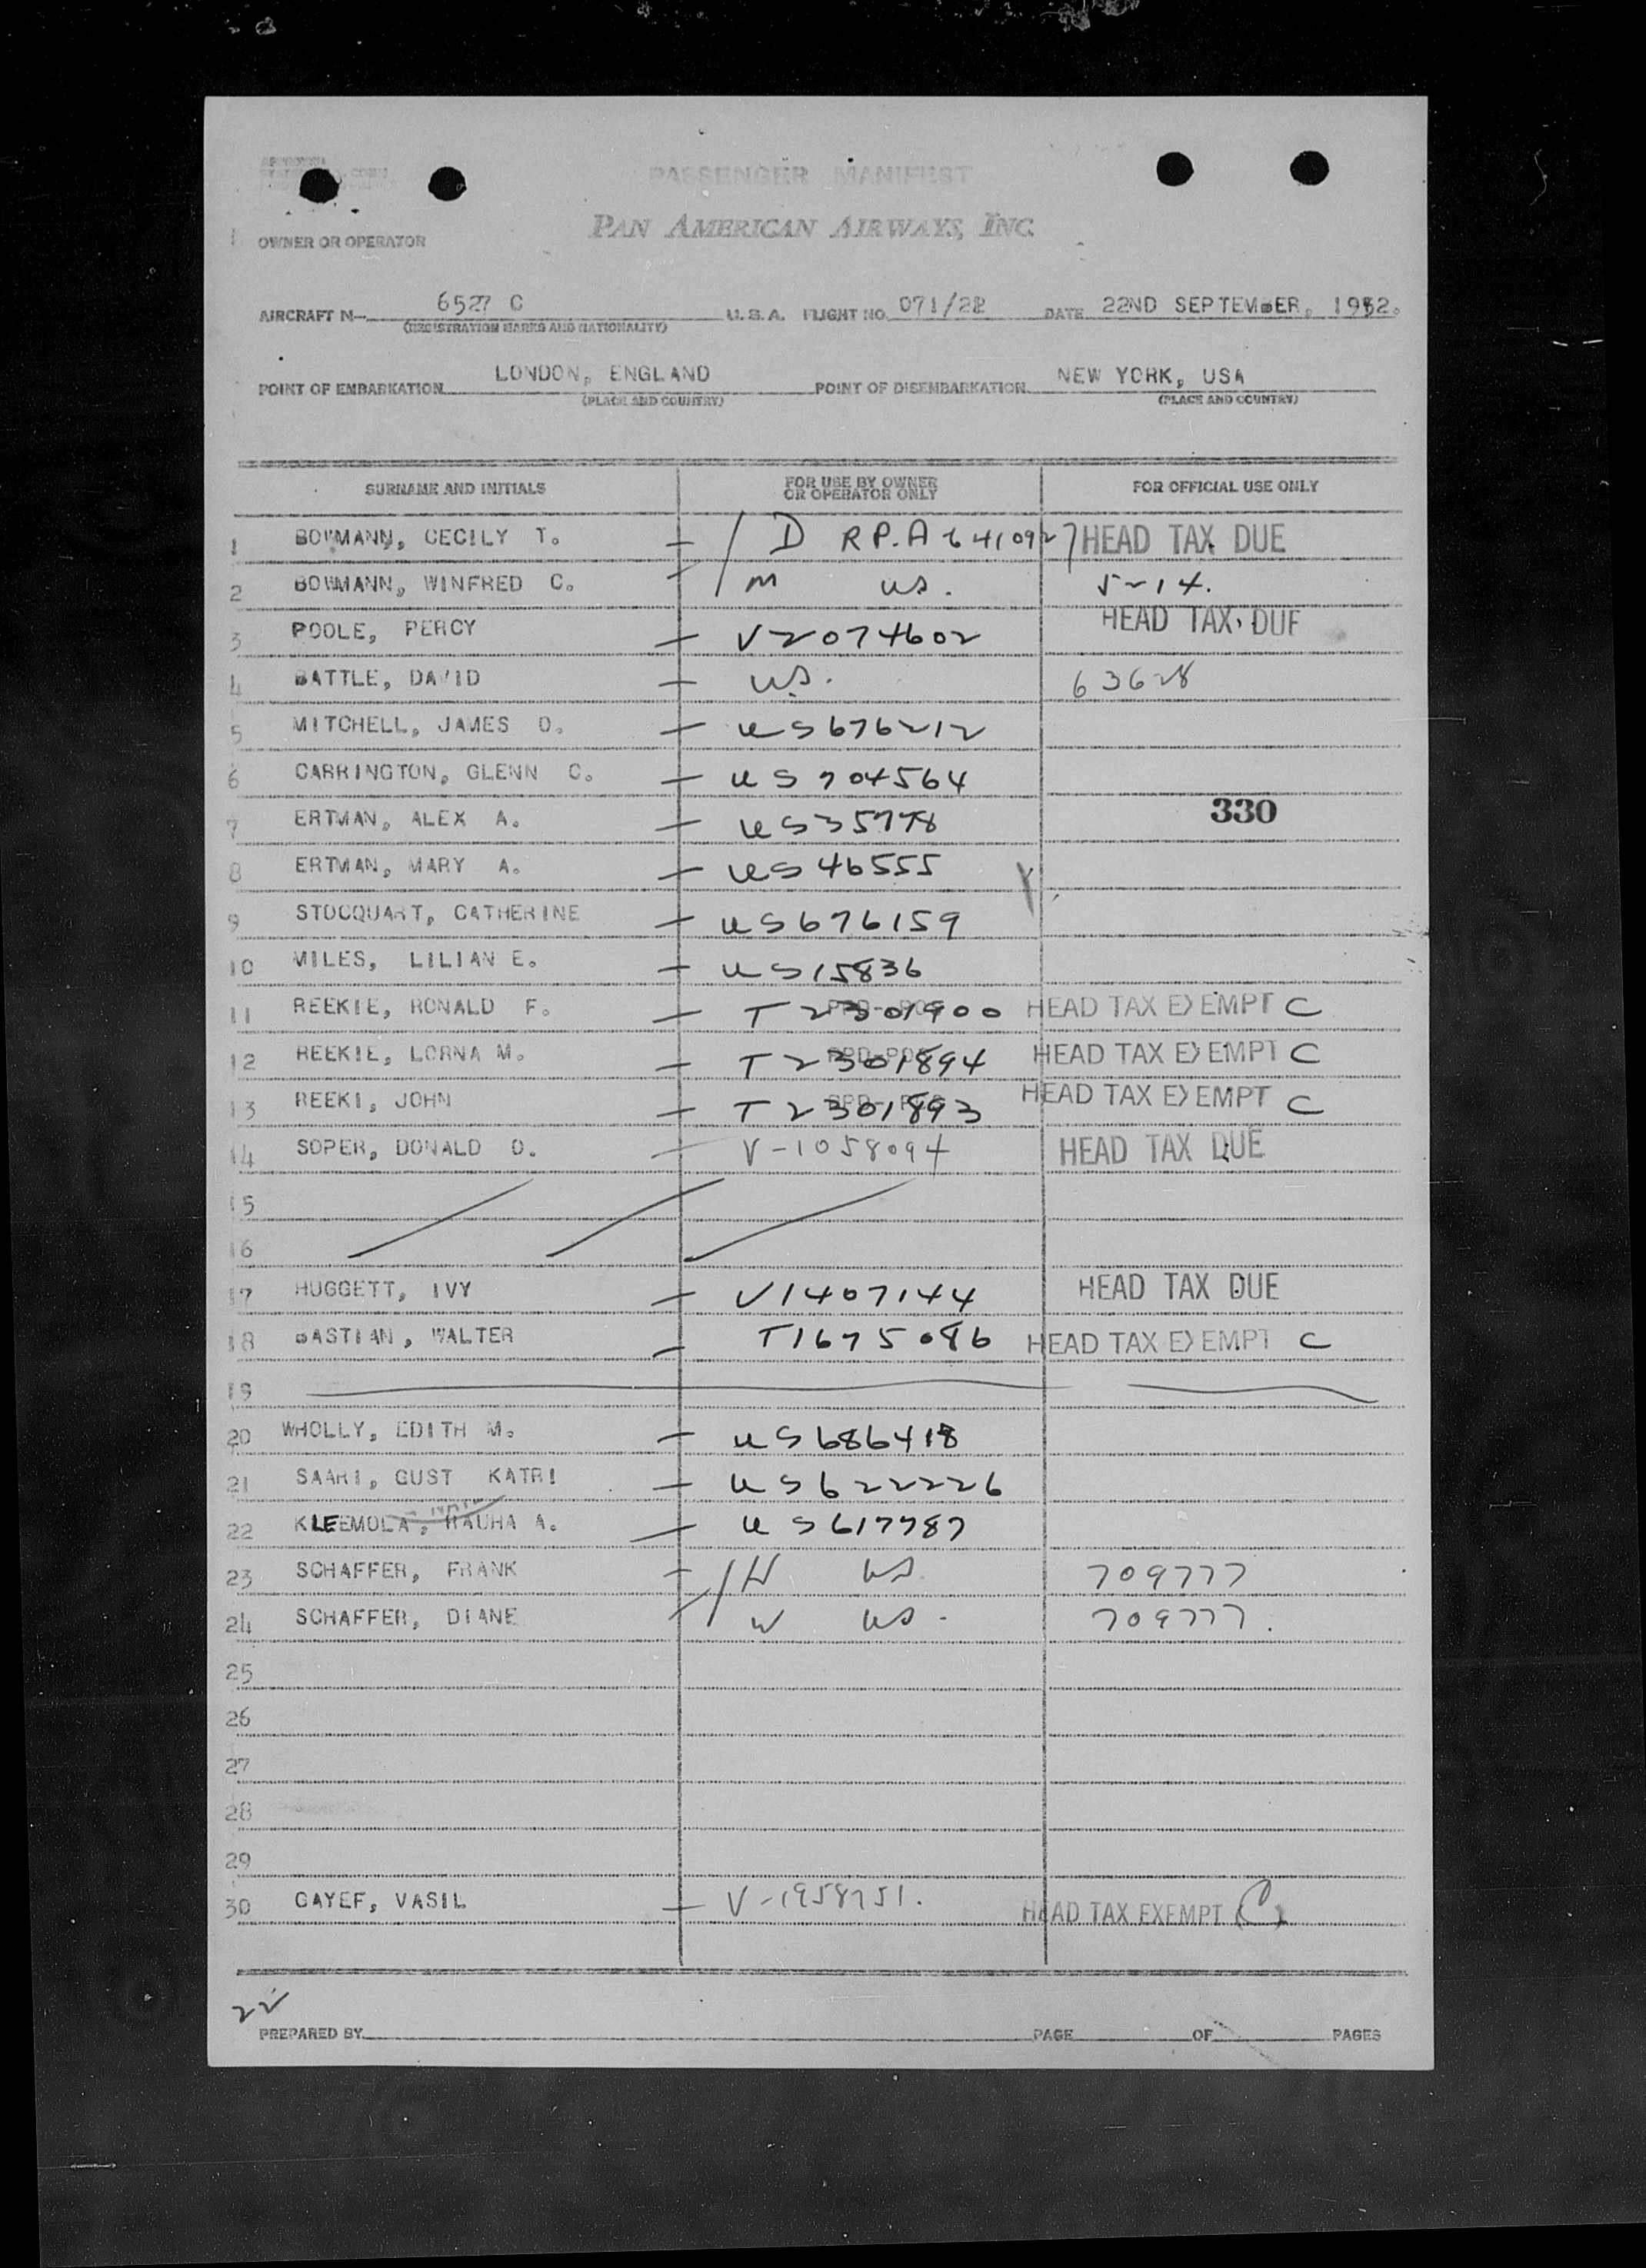 PASSENGER MANIFEST
PAN AMERICAN AIRWAYS, INC.
OWNER OR OPERATOR
AIRCRAFT N- 6527 C U.S.A. FLIGHT NO. 071/22 DATE 22ND SEPTEMBER, 1952.
(REGISTRATION MARKS AND NATIONALITY)
POINT OF EMBARKATION LONDON, ENGLAND POINT OF DISEMBARKATION NEW YORK, USA
(PLACE AND COUNTRY) (PLACE AND COUNTRY)
SURNAME AND INITIALS FOR USE BY OWNER OR OPERATOR ONLY FOR OFFICIAL USE ONLY
1 BOWMANN, CECILY T. — D R.P. A641092 HEAD TAX DUE
2 BOWMANN, WINFRED C. — M US. 5-14.
3 POOLE, PERCY — V2074602 HEAD TAX DUE
4 BATTLE, DAVID — US. 63628
5 MITCHELL, JAMES O. — US676212
6 CARRINGTON, GLENN C. — US704564
7 ERTMAN, ALEX A. — US35778 330
8 ERTMAN, MARY A. — US46555
9 STOCQUART, CATHERINE — US676159
10 MILES, LILIAN E. — US15836
11 REEKIE, RONALD F. — T2301900 HEAD TAX EXEMPT C
12 REEKIE, LORNA M. — T2301894 HEAD TAX EXEMPT C
13 REEKI, JOHN — T2301893 HEAD TAX EXEMPT C
14 SOPER, DONALD O. — V-1058094 HEAD TAX DUE
15
16
17 HUGGETT, IVY — V1407144 HEAD TAX DUE
18 BASTIAN, WALTER — T1675086 HEAD TAX EXEMPT C
19
20 WHOLLY, EDITH M. — US686418
21 SAARI, GUST KATRI — US622226
22 KLEEMOLA, RAUHA A. — US617787
23 SCHAFFER, FRANK — H US. 709777
24 SCHAFFER, DIANE W US. 709777.
25
26
27
28
29
30 GAYEF, VASIL — V-1958751. HEAD TAX EXEMPT C
22
PREPARED BY PAGE OF PAGES